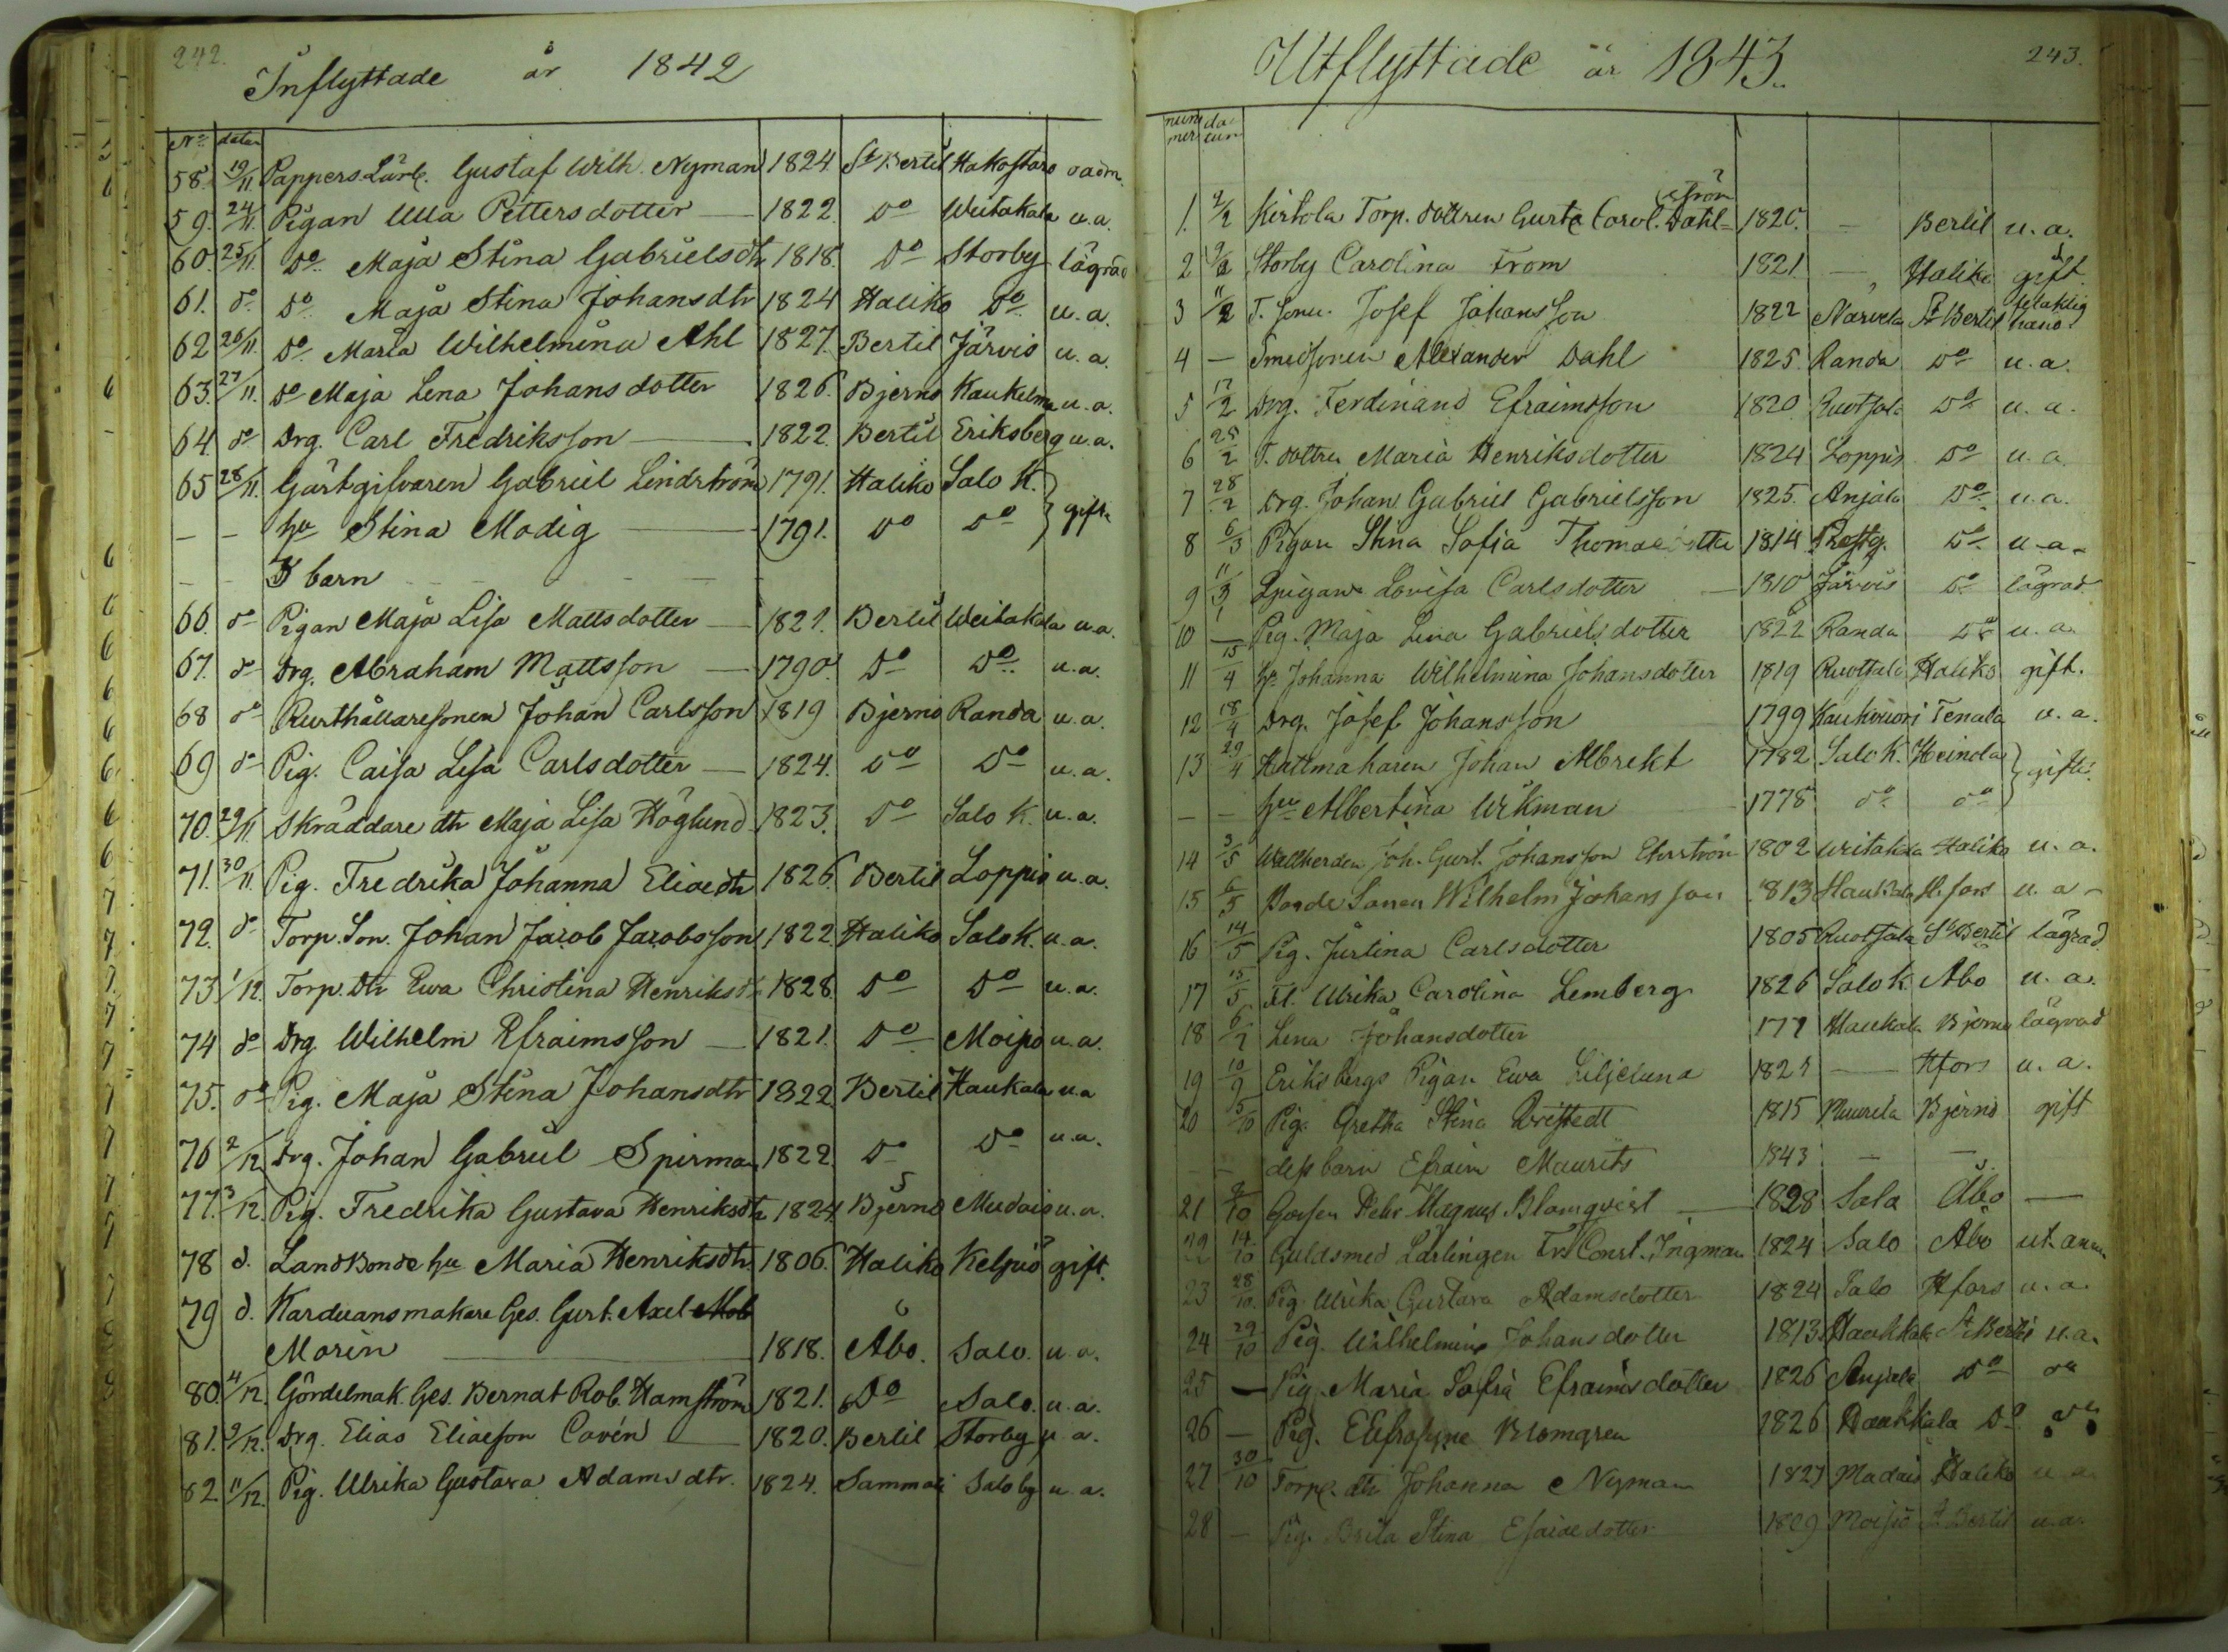 242.
Inflyttade år 1842
No datum
58. 19/11 Pappers Lärl. Gustaf Wilh. Nyman 1824. St Bertil Hakostaro oadm.
59. 24/11. Pigan Ulla Pettersdotter — 1822. Do Weitakala u.a.
60. 25/11. Do Maja Stina Gabrielsdtr 1818. Do Storby lägrad
61. do Do Maja Stina Johansdtr 1824 Haliko Do u.a.
62 26/11. Do Maria Wilhelmina Ahl 1827. Bertil Järvis u.a.
63. 27/11. Do Maja Lena Johansdotter 1826. Bjerno Kaukelma u.a.
64 do Drg. Carl Fredriksson — 1822 Bertil Eriksberg u.a.
65 28/11. Gästgifvaren Gabriel Lindström 1791. Haliko Salo K.
— — hu Stina Modig — 1791. Do Do } gifte
— — 3 barn
66. do Pigan Maja Lisa Mattsdotter — 1821. Bertil Weitakala u.a.
67. do Drg. Abraham Mattsson — 1790. Do Do u.a.
68 do Rusthållaresonen Johan Carlsson 1819 Bjerno Randa u.a.
69 do Pig. Caisa Lisa Carlsdotter — 1824. Do Do u.a.
70. 29/11 Skräddare dtr Maja Lisa Höglund 1823. Do Salo K. u.a.
71. 30/11 Pig. Fredrika Johanna Eliaedtr 1826. Bertil Loppis u.a.
72. do Torp. Son. Johan Jacob Jacobsson 1822 Haliko Salo K. u.a.
73 1/12. Torp. Dtr Ewa Christina Henriksd 1828. Do Do u.a.
74 do Drg Wilhelm Efraimsson — 1821. Do Moisio u.a.
75. do Pig. Maja Stina Johansdtr 1822. Bertil Haukala u.a
76 2/12 Drg. Johan Gabriel Spirman 1822 Do Do u.a.
77. 3/12. Pig. Fredrika Gustava Henriksdtr 1824 Bjerno Mudais u.a.
78 d. Landbonde hu Maria Henriksdtr 1806. Haliko Kelpis gift.
79 d. Karduansmakare Ges. Gust. Axel Mob
Morin — 1818. Åbo. Salo. u.a.
80. 4/12. Gördelmak. Ges. Bernat Rob. Hamström 1821. Do Salo. u.a.
81. 9/12. Drg. Elias Eliaeson Cavén — 1820. Bertil Storby u.a.
82. 11/12. Pig. Ulrika Gustava Adamsdtr. 1824. Sammati Salo by u.a.
243.
Utflyttade år 1843.
num mer da tum
ström
1. 2/2 Kirkola Torp. dottren Gusta Carol. Dahl= 1820. — Bertil u.a.
2 9/2 Storby Carolina From 1821 — Haliko gift
3 11/2 T. sonen Josef Johansson 1822 Narvela St Bertil
4 — Smedsonen Alexander Dahl 1825. Randa Do u.a.
5 17/2 Drg. Ferdinand Efraimsson 1820 Ruotsala Do u.a.
6 25/2 T. dottren Maria Henriksdotter 1824 Loppis Do u.a
7 28/2 Drg. Johan Gabriel Gabrielsson 1825. Anjala Do u.a.
8 6/3 Pigan Stina Sofia Thomaedotter 1814 Prestg. Do u.a.
9 11/3 Lovisa Carlsdotter — 1810 Järvis Do lägrad
10 — Pig. Maja Lena Gabrielsdotter 1822 Randa Do u.a.
11 15/4 hu Johanna Wilhelmina Johansdotter 1819 Ruotsala Haliko gift.
12 18/4 Drg. Josef Johansson 1799 Kaukvuori Tenala u.a.
13 29/4 Hattmakaren Johan Albrekt 1782 Salo K. Heinola
— — hu Albertina Wikman 1778 do do } gifte.
14 3/5 Wallherden Joh. Gust. Johansson Ehrström 1802 Weitakala Haliko u.a.
15 6/5 Bonde Sonen Wilhelm Johansson 1813 Haukala H.fors u.a.
16 14/5 Pig. Justina Carlsdotter 1805 Ruotsala St Bertil lägrad
17 15/5 Fl. Ulrika Carolina Lemberg 1826 Salo K Åbo u.a.
18 6/7 Lena Johansdotter 177 Haukala Bjerno lägrad
19 10/9 Eriksbergs Pigan Ewa Liljelund 1821 — Hfors u.a.
20 5/10 Pig. Gretha Stina Qvistedt 1815 Bjerno gift
— — dess barn Efraim Maurits 1843 — —
21 9/10 Gossen Pehr Magnus Blomqvist — 1828 Salo Åbo —
22 14/10 Guldsmed Lärlingen Fr. Const. Ingman 1824 Salo Åbo ut. anm
23 28/10. Pig. Ulrika Gustava Adamsdotter 1824 Salo Hfors u.a.
24 29/10 Pig. Wilhelmina Johansdotter 1813 Haukkala St Bertil u.a.
25 — Pig. Maria Sofia Efraimsdotter 1826 Anjala Do do
26 — Pig. Eufrosyne Blomgren 1826 Haukkala Do do
27 30/10 Torp. dtr Johanna Nyman 1827 Madais Haliko u.a
28 — Pig. Brita Stina Esaiaedotter 1809 Moisio St Bertil u.a.